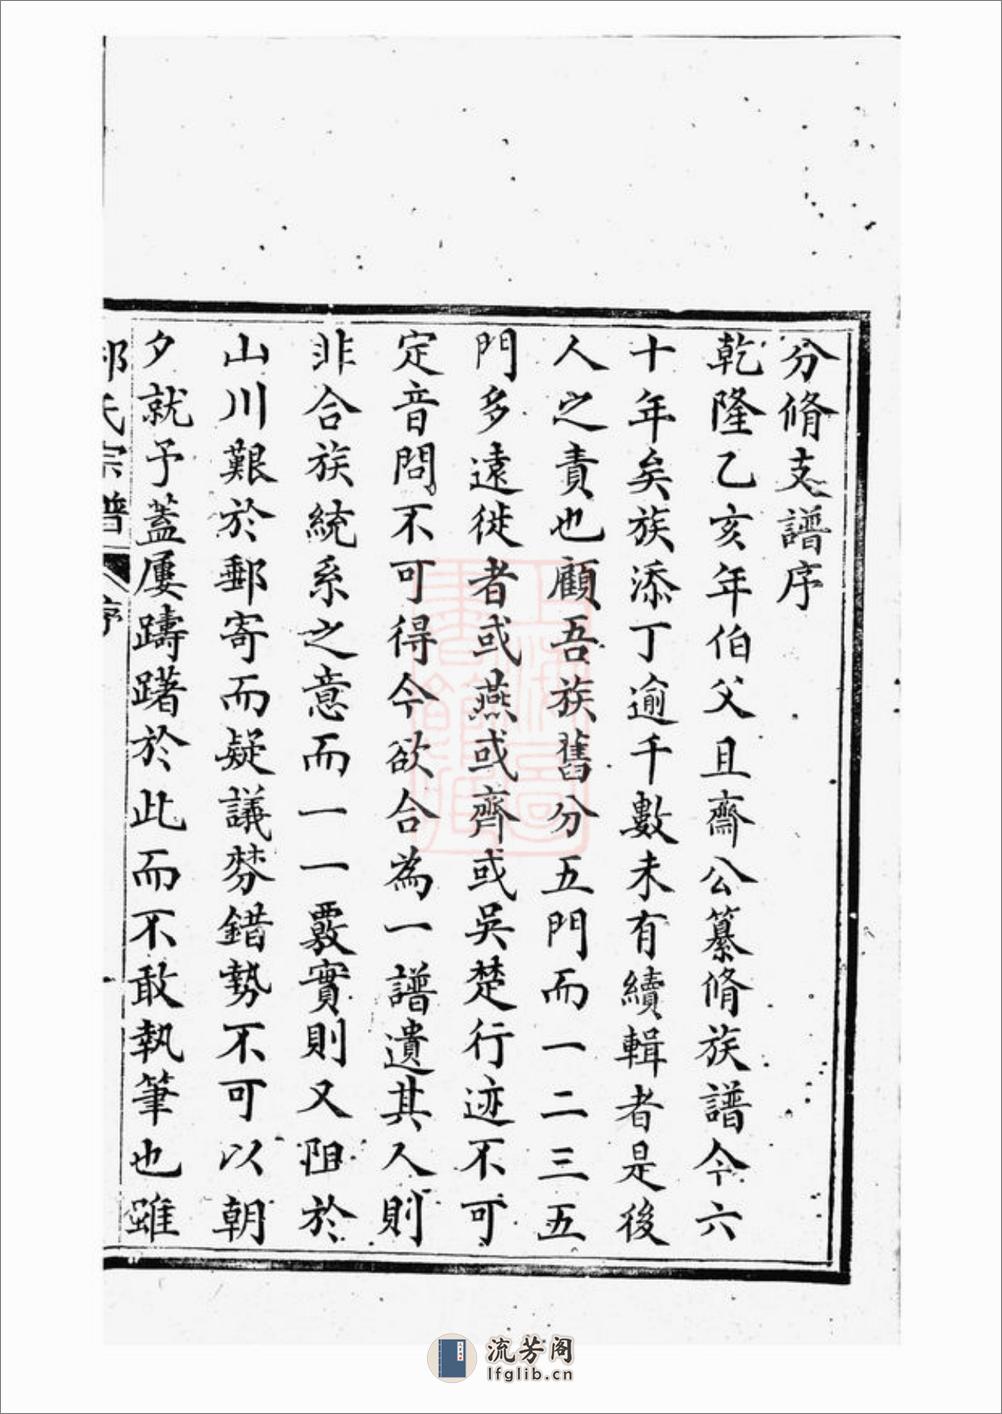 分脩支譜序
乾隆乙亥年伯父且齋公纂脩族譜今六
十年矣族添丁逾千數未有續輯者是後
人之責也顧吾族舊分五門而一二三五
門多遠徙者或燕或齊或吳楚行迹不可
定音問不可得今欲合為一譜遺其人則
非合族統系之意而一一覈實則又阻於
山川艱於郵寄而疑議棼錯勢不可以朝
夕就予蓋屢躊躇於此而不敢執筆也雖
氏宗譜
序
流芳阁
lfglib.cn